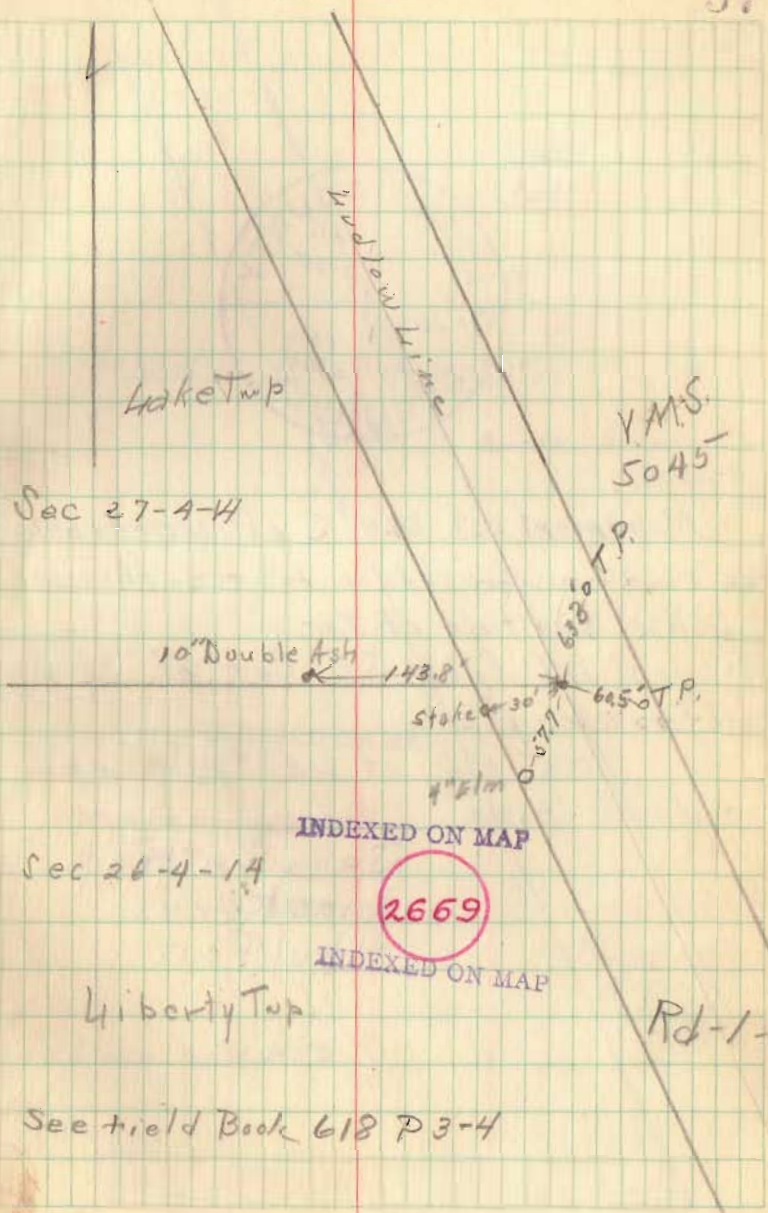 Ludlow Line
Lake Twp
V.M.S.
5045
Sec 27-4-14
T.P.
63.8
10" Double Ash
143.8'
60.5 T.P.
Stake 30'
57.7
4" Elm
INDEXED ON MAP
Sec 26-4-14
2669
INDEXED ON MAP
Liberty Twp
Rd-1-
See field Book 618 P 3-4